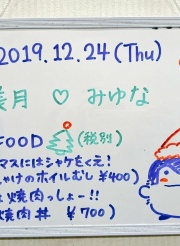 2019.12.24(Thu)
美月 ♡ みゆな
FOOD (税別)
マスにはシャケをくえ!
しゃけのホイルむし ¥400)
焼肉っしょー!!
焼肉丼 ¥700)